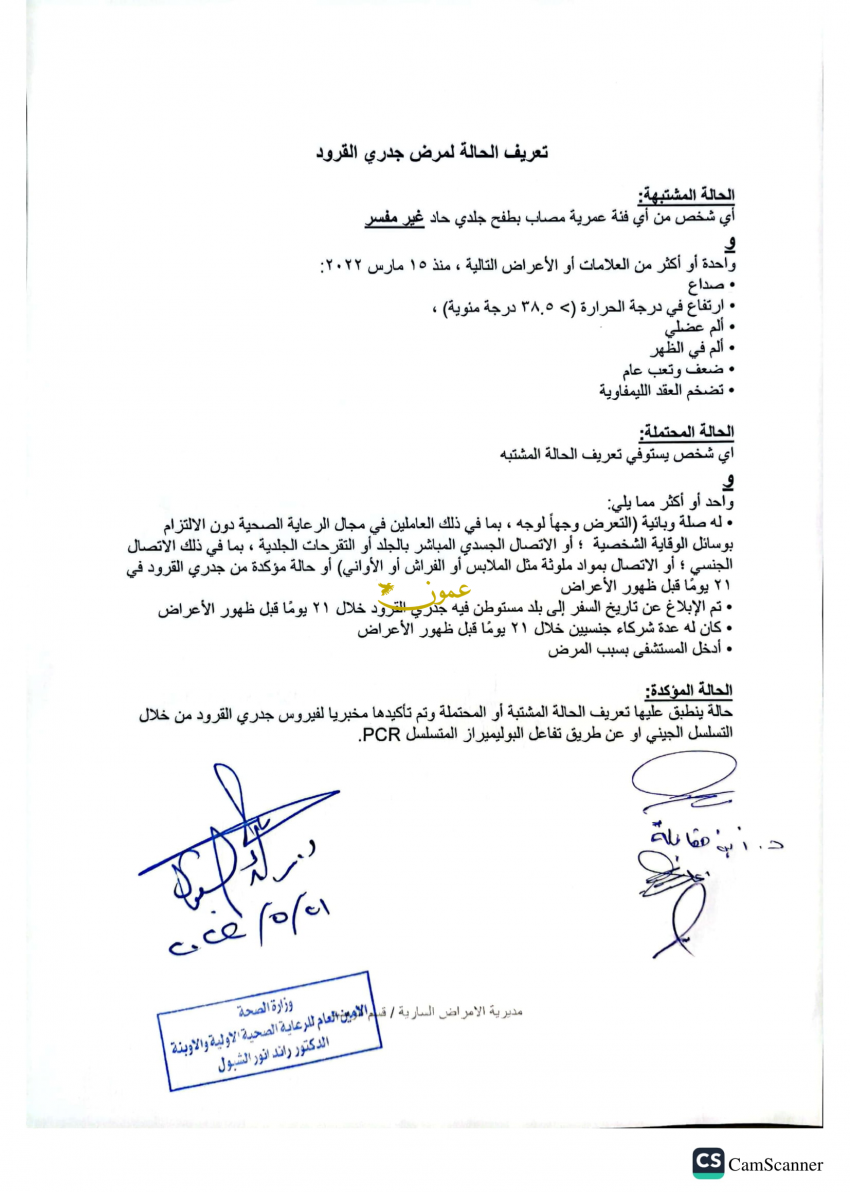 تعريف الحالة لمرض جدري القرود
الحالة المشتبهة:
أي شخص من أي فئة عمرية مصاب بطفح جلدي حاد غير مفسر
و
واحدة أو أكثر من العلامات أو الأعراض التالية ، منذ ١٥ مارس ٢٠٢٢:
• صداع
• ارتفاع في درجة الحرارة (> ٣٨.٥ درجة مئوية) ،
• ألم عضلي
• ألم في الظهر
• ضعف وتعب عام
• تضخم العقد الليمفاوية
الحالة المحتملة:
اي شخص يستوفي تعريف الحالة المشتبه
و
واحد أو أكثر مما يلي:
• له صلة وبائية (التعرض وجهاً لوجه ، بما في ذلك العاملين في مجال الرعاية الصحية دون الالتزام
بوسائل الوقاية الشخصية ؛ أو الاتصال الجسدي المباشر بالجلد أو التقرحات الجلدية ، بما في ذلك الاتصال
الجنسي ؛ أو الاتصال بمواد ملوثة مثل الملابس أو الفراش أو الأواني) أو حالة مؤكدة من جدري القرود في
٢١ يومًا قبل ظهور الأعراض
عمون
• تم الإبلاغ عن تاريخ السفر إلى بلد مستوطن فيه جدري القرود خلال ٢١ يومًا قبل ظهور الأعراض
• كان له عدة شركاء جنسيين خلال ٢١ يومًا قبل ظهور الأعراض
• أدخل المستشفى بسبب المرض
الحالة المؤكدة:
حالة ينطبق عليها تعريف الحالة المشتبة أو المحتملة وتم تأكيدها مخبريا لفيروس جدري القرود من خلال
التسلسل الجيني او عن طريق تفاعل البوليميراز المتسلسل PCR.
مديرية الامراض السارية / قسم
وزارة الصحة
الامين العام للرعاية الصحية الاولية والاوبئة
الدكتور رائد انور الشبول
CS CamScanner